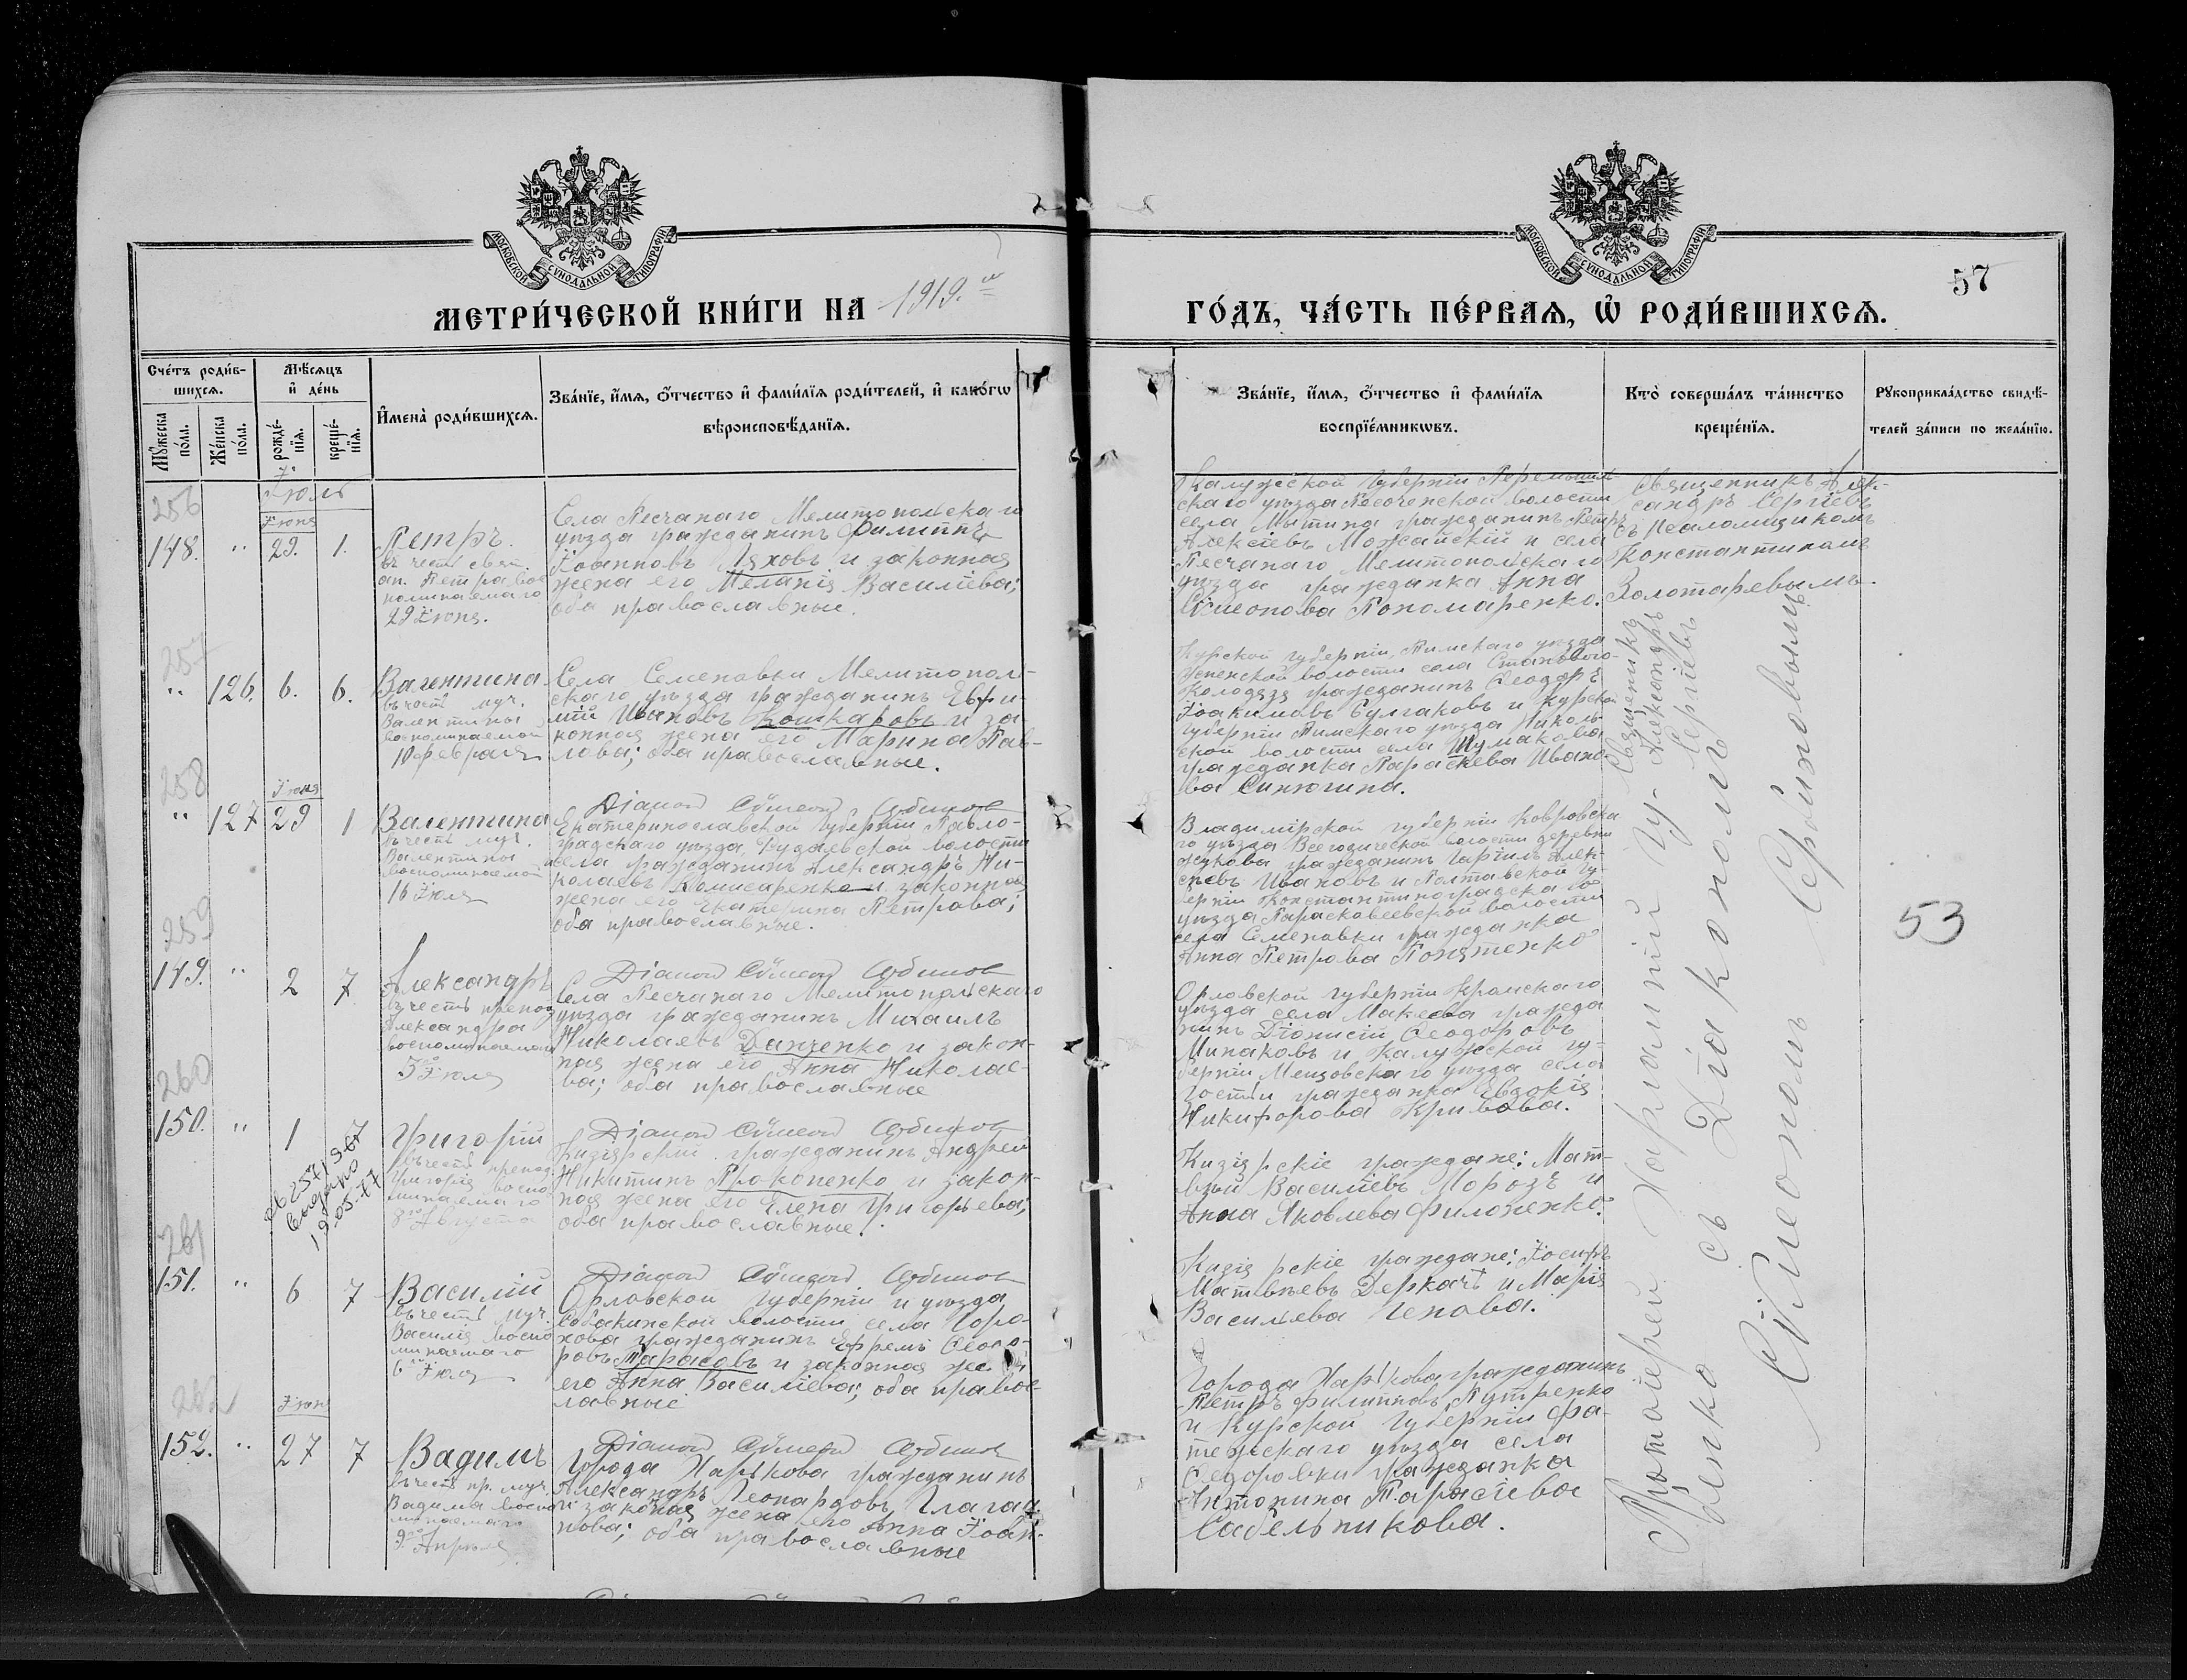 МОСКОВСКОЙ СѴНОДАЛЬНОЙ ТИПОГРАФІИ
МОСКОВСКОЙ СѴНОДАЛЬНОЙ ТИПОГРАФІИ
57
МЕТРИ́ЧЕСКОЙ КНИ́ГИ НА 1919.
ГО́ДЪ, ЧА́СТЬ ПЕ́РВАѦ, Ѿ РОДИ́ВШИХСѦ.
Сче́тъ роди́в-
шихсѧ.
Мꙋ́жеска
по́ла.
Же́нска
по́ла.
Мѣ́сѧцъ
и҆ де́нь
рожде́-
нїѧ.
креще́-
нїѧ.
И҆мена̀ роди́вшихсѧ.
Зва́нїе, и҆́мѧ, ѻ҆́тчество и҆ фами́лїѧ роди́телей, и҆ како́гѡ
вѣроисповѣ́данїѧ.
Зва́нїе, и҆́мѧ, ѻ҆́тчество и҆ фами́лїѧ
воспрїе́мникѡвъ.
Кто̀ соверша́лъ та́инство
креще́нїѧ.
Рꙋкоприкла́дство свидѣ́-
телей за́писи по жела́нїю.
Іюль
256
Іюня
148. " 29. 1.
Петръ.
въ честь свят.
ап. Петра вос
поминаемаго
29 Іюня.
Села Песчанаго Мелитопольскаго
уѣзда гражданинъ Филиппъ
Іоанновъ Ляховъ и законная
жена его Меланія Василіева;
оба православные.
Калужской губерніи Перемышль
скаго уѣзда Песоченской волости
села Мытина гражданинъ Петръ
Алексіевъ Можайскій и села
Песчанаго Мелитопольскаго
уѣзда гражданка Анна
Сѵмеонова Пономаренко.
Священникъ Алек-
сандръ Сергіевъ
съ псаломщикомъ
Константиномъ
Золотаревымъ.
257
" 126. 6. 6.
Валентина
въ честь муч.
Валентины
воспоминаемой
10 февраля
Села Семеновки Мелитополь-
скаго уѣзда гражданинъ Евфи-
мій Ивановъ Кошкаровъ и за
конная жена его Марина Пав-
лова; оба православные.
Курской губерніи, Тимскаго уѣзда
Успенской волости села Становаго
Колодезя гражданинъ Ѳеодоръ
Іоакимовъ Булгаковъ и Курской
губерніи Тимскаго уѣзда Николь-
ской волости села Шумакова
гражданка Параскева Ивано-
ва Синюгина.
Священникъ
Александръ
Сергіевъ
258
Іюня
" 127 29 1
Валентина
въ честь муч.
Валентины
воспоминаемой
16 Іюля
Діаконъ Сѵмеонъ
Екатеринославской губерніи Павло-
градскаго уѣзда, волости
села гражданинъ Александръ Ни-
колаевъ Комисаренко и законная
жена его Екатерина Петрова;
оба православные.
Владимірской губерніи Ковровска
го уѣзда Всегодической волости деревни
Жукова гражданинъ Гавріилъ Алек-
сѣевъ Ивановъ и Полтавской гу-
берніи Константиноградскаго
уѣзда Парасковеевской волости
села Семеновки гражданка
Анна Петрова Понятенко
53
259
149. " 2 7
Александръ
въ честь препод.
Александра
воспоминаемаго
3 Іюля
Діаконъ Сѵмеонъ
Села Песчанаго Мелитопольскаго
уѣзда гражданинъ Михаилъ
Николаевъ Данченко и закон-
ная жена его Анна Николае-
ва; оба православные
Орловской губерніи Кромскаго
уѣзда села Макеева гражда
нинъ Діонисій Ѳеодоровъ
Минаковъ и Калужской гу-
берніи Мещовскаго уѣзда села
гражданка Евдокія
Никифорова Кривова.
260
150. " 1
2625/1967
выдано
19.05-77
Григорій
въ честь препод.
Григорія воспо
минаемаго
8 Августа
Діаконъ Сѵмеонъ
Кизіярскій гражданинъ Андрей
Никитинъ Прокопенко и закон-
ная жена его Елена Григорьева;
оба православные.
Кизіярскіе граждане: Мат-
вѣй Василіевъ Морозъ и
Анна Яковлева Филоненко.
261
151. " 6 7
Василій
въ честь муч.
Василія воспо
минаемаго
6 Іюля
Діаконъ Сѵмеонъ
Орловской губерніи и уѣзда
Собакинской волости села Горо-
хова гражданинъ Ефремъ Ѳеодо-
ровъ Тарасовъ и законная жена
его Анна Василіева; оба правос-
лавные
Кизіярскіе граждане: Іосифъ
Матвѣевъ Деркачъ и Марія
Васильева
262
Іюня
152. " 27 7
Вадимъ
въ честь пр. муч.
Вадима воспо
минаемаго
9 Апрѣля
Діаконъ Сѵмеонъ
Города Харькова гражданинъ
Александръ Леонардовъ
и законная жена его Анна Іоан-
нова; оба православные
Города Харькова гражданинъ
Петръ Филипповъ
и Курской губерніи Фа-
тежскаго уѣзда села
Ѳедоровки гражданка
Антонина Тарасіева
Сабельникова.
Протоіерей Харлампій Гу-
бенко съ Діакономъ
Сѵмеономъ